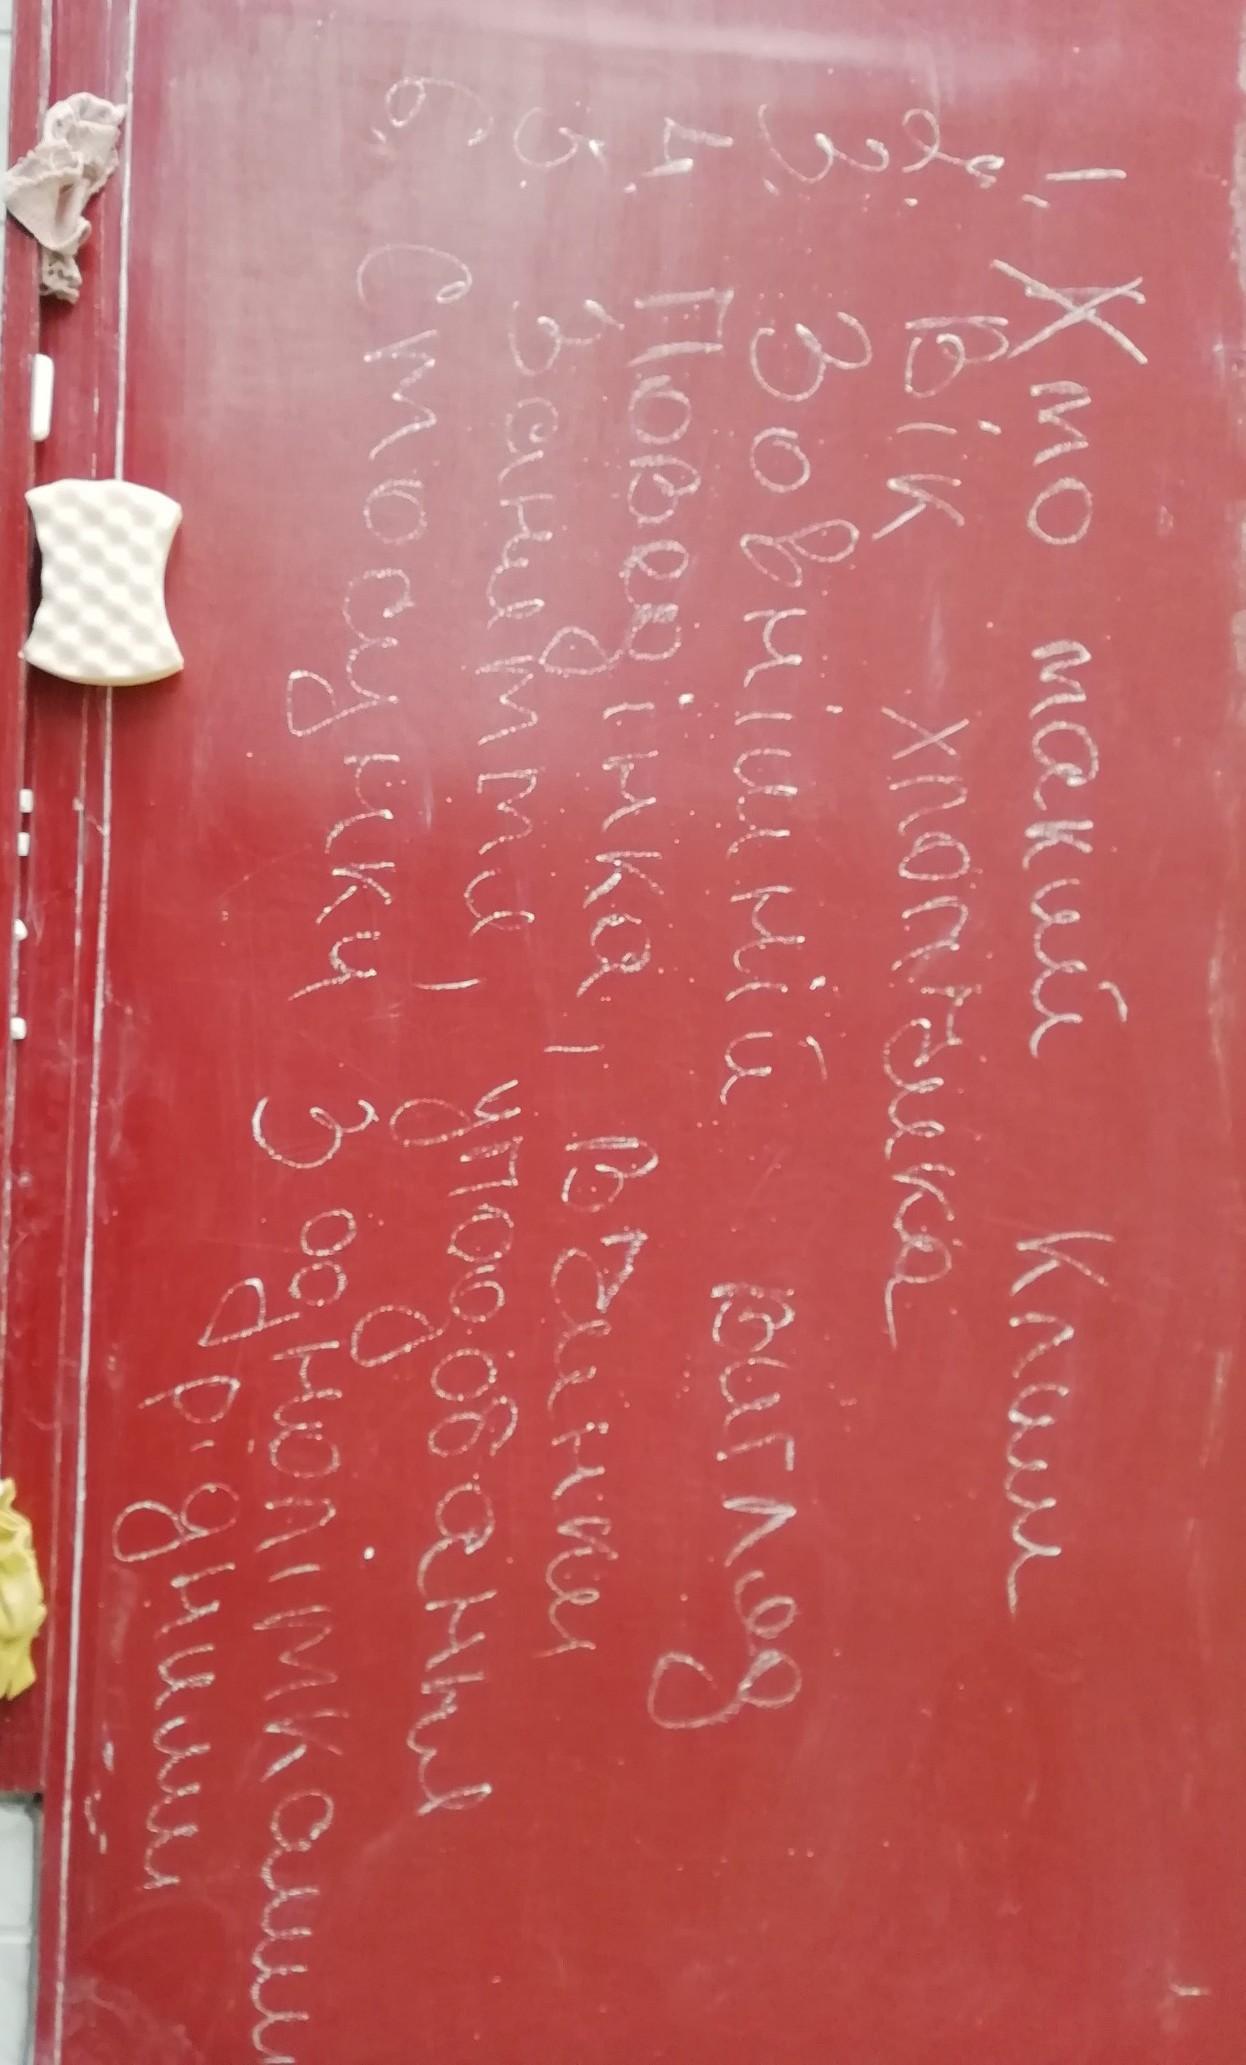 1. Хто такий Клим
2. Вік хлопчика
3. Зовнішній вигляд
4. Поведінка, вчинки
5. Заняття, уподобання
6. Стосунки з однолітками,
рідними